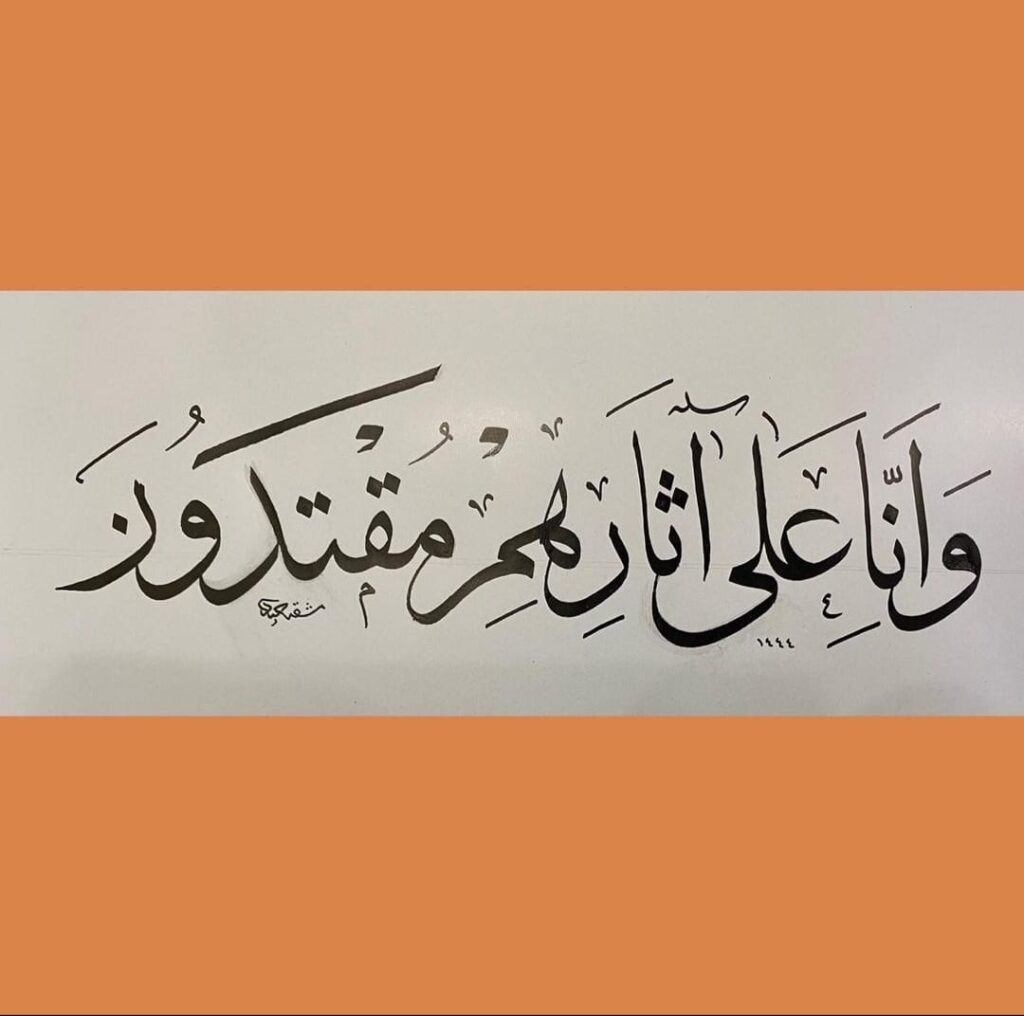 وَاِنَّا عَلٰٓى آثَارِهِمْ مُقْتَدُونَ
١٤٤٤